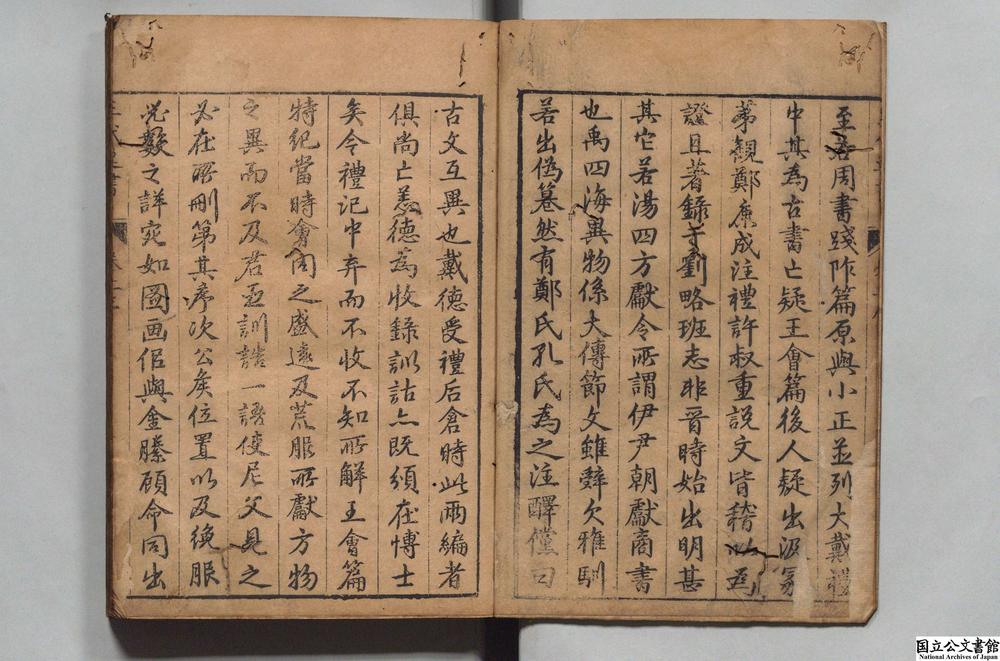 至若周書踐阼篇原與小正並列大戴禮
中其為古書亡疑王會篇後人疑出汲冡
第觀鄭康成注禮許叔重說文皆稽以為
證且著錄于劉略班志非晉時始出明甚
其它若湯四方獻令所謂伊尹朝獻商書
也禹四海異物係大傳節文雖辤欠雅馴
若出偽纂然有鄭氏孔氏為之注釋僅曰
古文互異也戴德受禮后倉時此兩編者
俱尚亡恙德為收錄訓詁亦既頒在愽士
矣今禮記中弃而不收不知所解王會篇
特紀當時會同之盛遠及荒服所獻方物
之異而不及君臣訓誥一語使尼父見之
必在所刪第其序次公矦位置以及绝服
品數之詳宛如圖画佀與金縢顧命同出
国立公文書館
National Archives of Japan